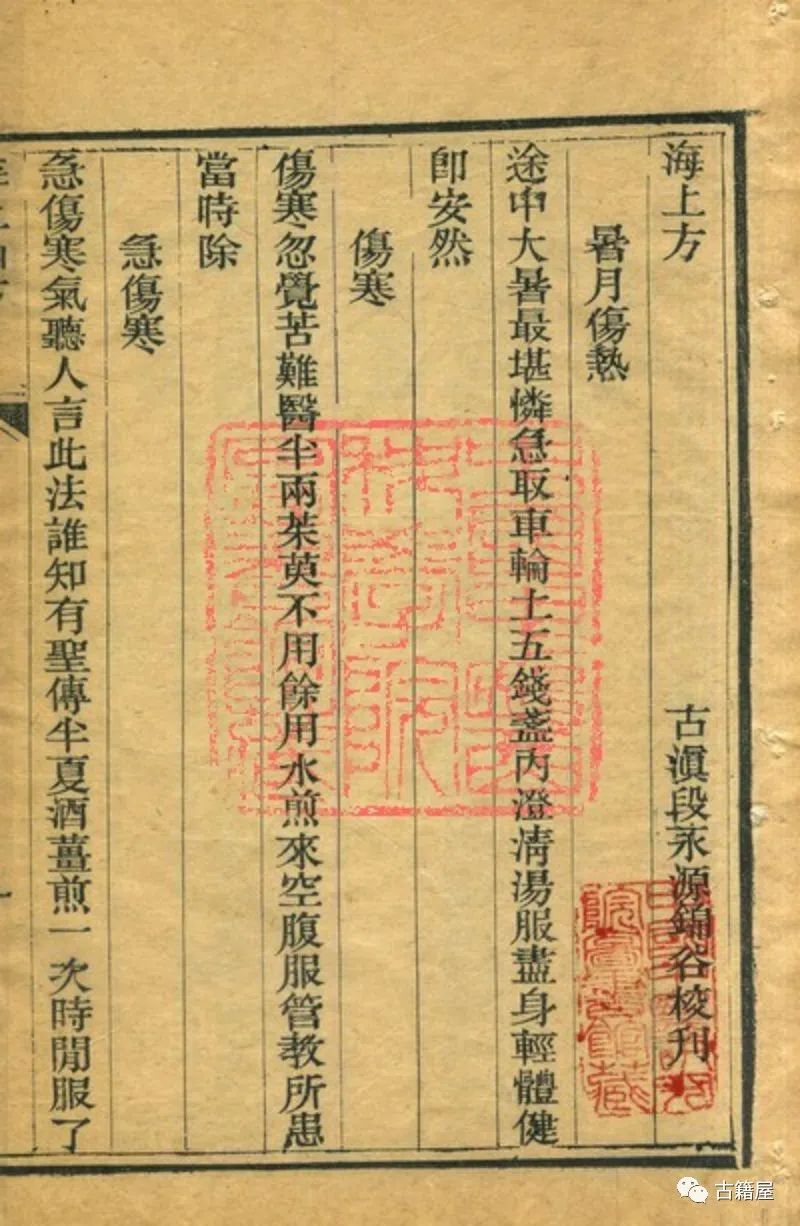 海上方
古滇段永源錦谷梭刊
暑月傷熱
途中大暑最堪憐急取車輪土五錢盞內澄淸湯服盡身輕體健
卽安然
傷寒
傷寒忽覺苦難醫半兩茱萸不用餘用水煎來空腹服管教所患
當時除
急傷寒
急傷寒氣聽人言此法誰知有聖傳半夏酒薑煎一次時閒服了
古籍屋